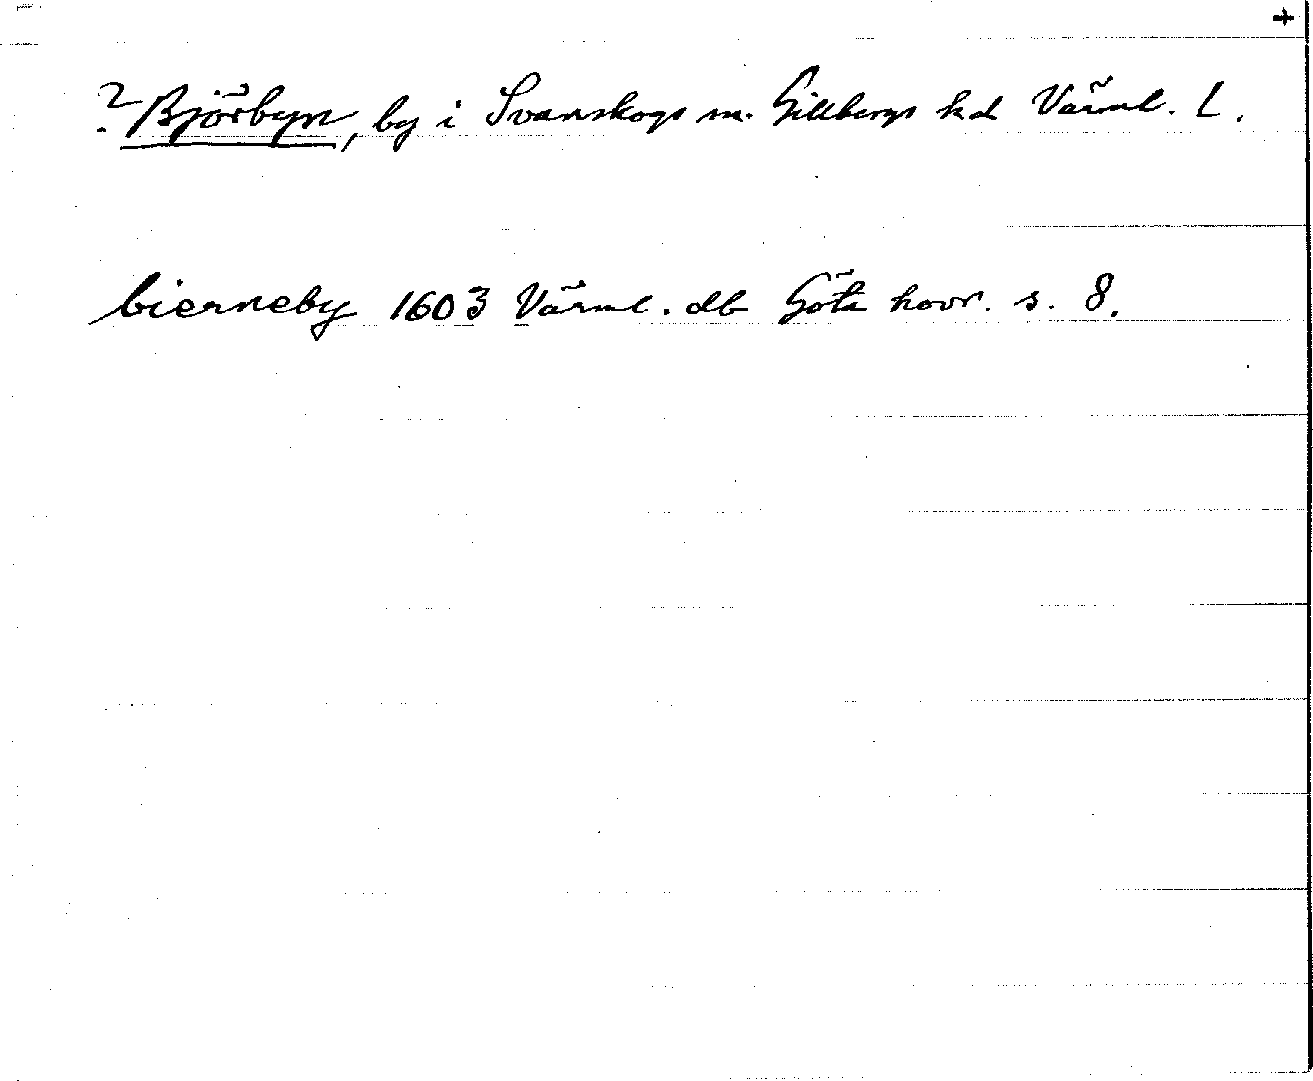 +
? Björbyn, by i Svanskogs sn. Gillbergs hd Värml. L.
bierneby 1603 Värml. db Göta hovr. s. 8.